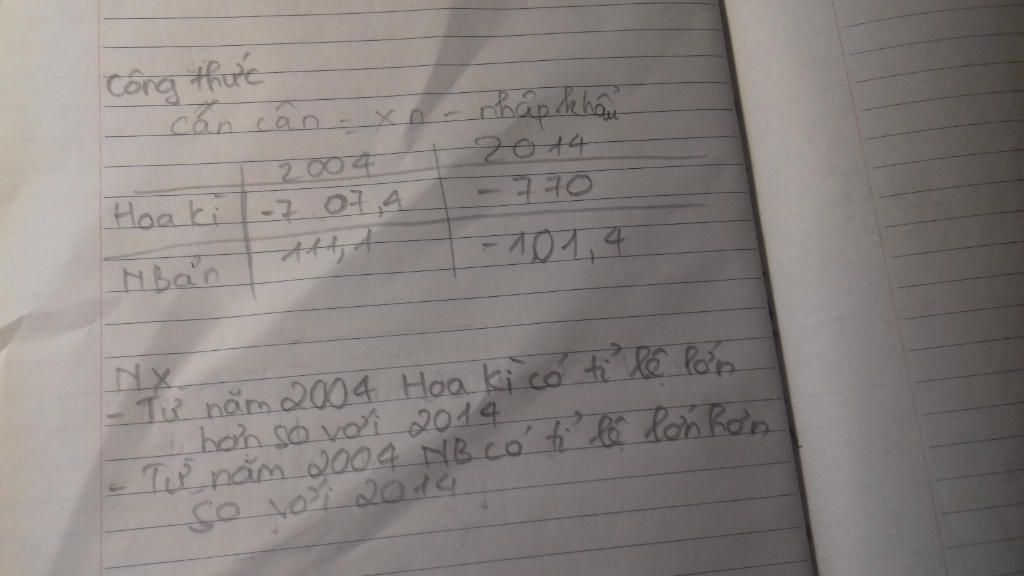 Công thức
cán cân = xn - nhập khẩu
2004 2014
Hoa kì -7 07,4 -770
NBản 111,1 -101,4
NX
- Từ năm 2004 Hoa kì có tỉ lệ lớn
hơn so với 2014
- Từ năm 2004 NB có tỉ lệ lớn hơn
so với 2014